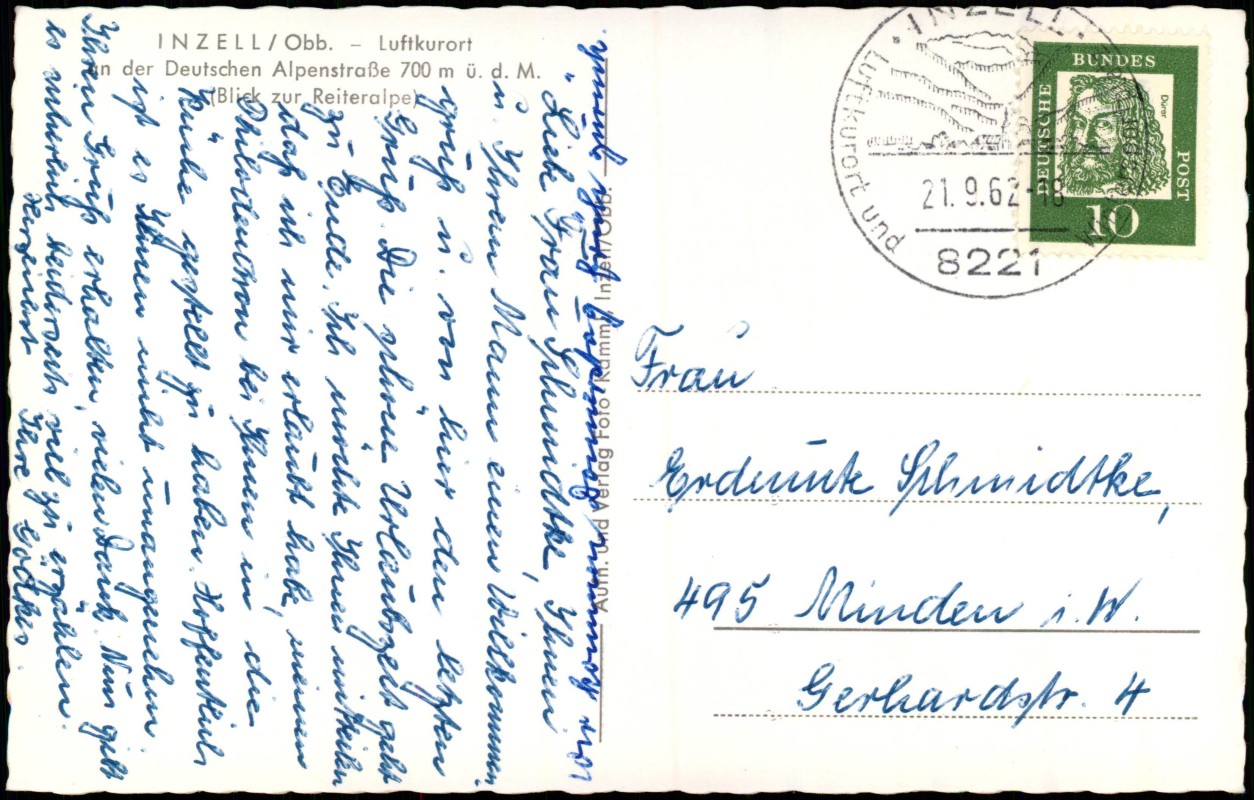 INZELL/Obb. – Luftkurort
an der Deutschen Alpenstraße 700 m ü. d. M.
(Blick zur Reiteralpe)
Liebe Frau Schmidtke, Ihnen
u. Ihrem Mann einen Willkommen-
gruß u. von hier den letzten
Gruß. Die schöne Urlaubszeit geht
zu Ende. Ich möchte Ihnen mitteilen
daß ich mir erlaubt habe, meinen
Philodentron bei Ihnen in die
Küche gestellt zu haben. Hoffentlich
ist es Ihnen nicht unangenehm.
Ihren Gruß erhalten, vielen Dank. Nun gibt
es unsererseits viel zu erzählen.
Ihre
wir kommen Sonntag
Aufn. und Verlag Foto Kamml Inzell/Obb.
INZELL
Luftkurort und
21.9.62-18
8221
DEUTSCHE BUNDES POST
Dürer
10
Frau
Schmidtke,
495 Minden i. W.
Gerhardstr. 4